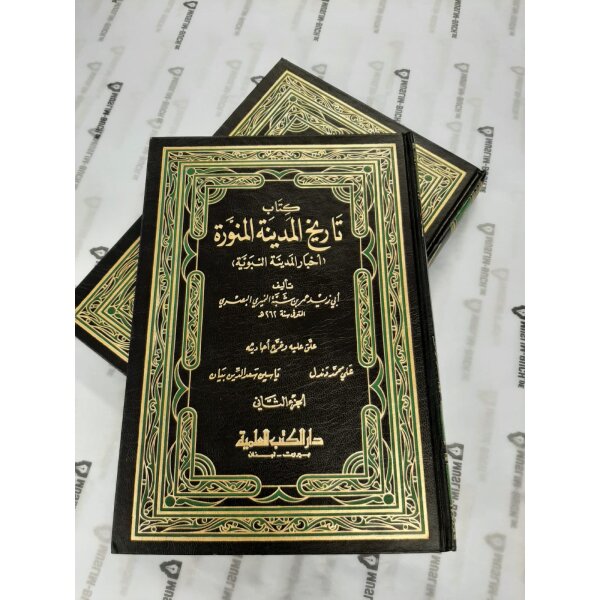 كتاب
تاريخ المدينة المنورة
(أخبار المدينة النبوية)
تأليف
أبي زيد عمر بن شبة النميري البصري
المتوفى سنة ٢٦٢ هـ
علق عليه وخرج أحاديثه
علي محمد دندل ياسين سعد الدين بيان
الجزء الثاني
دار الكتب العلمية
بيروت - لبنان
MUSLIM-BUCH.DE